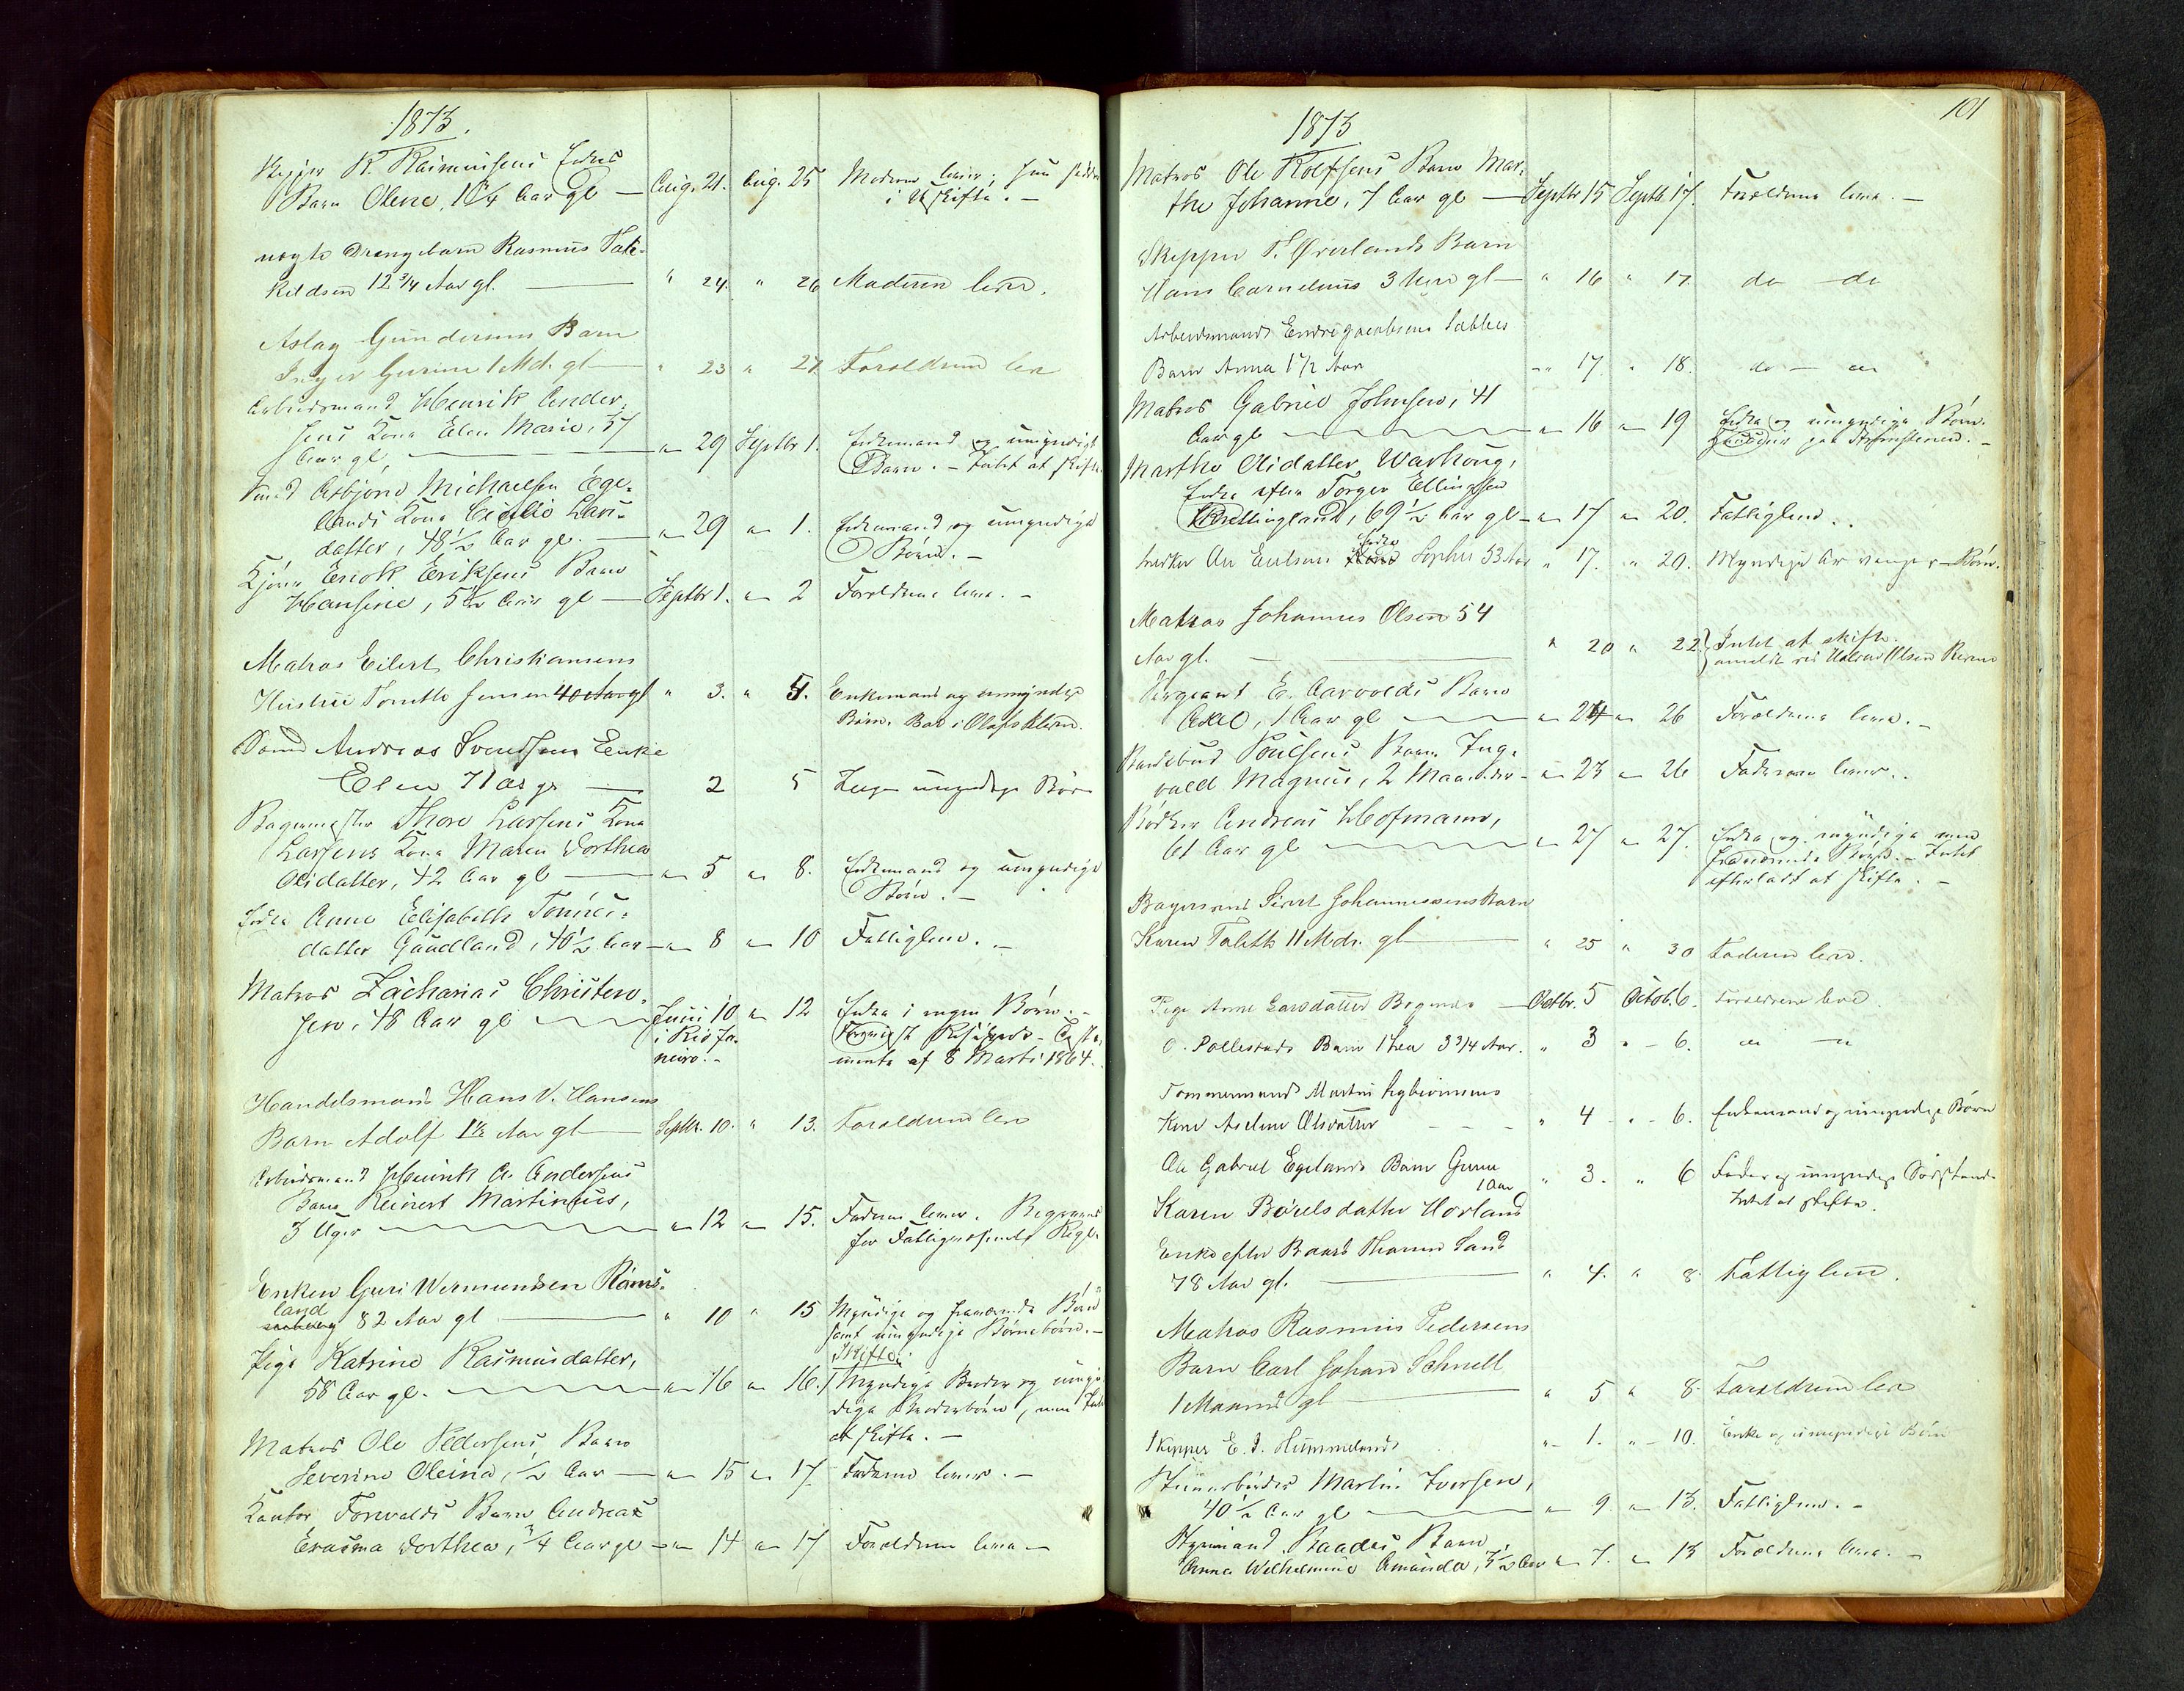 1873.
R. Rasmusens Enkes
Barn Olene, 1 1/4 Aar gl — Aug. 21. Aug. 25 Moderen lever; hun sidder
i Uskifte. —
Drengebarn Rasmus
kildsen 12 3/4 Aar gl. — " 24. " 26 Moderen lever.
Aslag Gundersens Barn
Inger Gurine 1 Md. gl — " 23 " 27 Forældrene lev
Arbeidsmand Henrik Ander-
sens Kone Elen Marie, 57
Aar gl, — " 29 Septbr 1. Enkemand og umyndigt
Barn. — Intet at skifte
Asbjørn Michaelsen Ege-
lands Kone Cecilie Lars-
datter, 48 1/2 Aar gl. — " 29 " 1. Enkemand og umyndige
Børn. —
Eriksens Barn
Hansine, 5 1/2 Aar gl — Septbr 1. " 2 Forældrene lever. —
Matros Eilert Christiansens
Hustru Jensen 40 Aar gl " 3. " 5. Enkemand og umyndige
Børn. Boe i Olafsklevn.
Andreas Svendsens Enke
Elen 71 ar gl — 2 5 Ingen umyndige Børn
Bagermester Thore Larsens Kone
Larsens Kone Maren Dorthea
Olsdatter, 42 Aar gl — " 5 " 8. Enkemand og umyndige
Børn. —
Enke Anne Elisabeth Tønnes-
datter Gaudland, 40 1/2 Aar — " 8 " 10 Fattiglem. —
Matros Zacharias Christen-
sen, 48 Aar gl — Juni 10 " 12 Enke i ingen Børn. —
i Rio Ja-
neiro. — mente af 8 Marts 1864.
Handelsmand Hans V. Hansens
Barn Adolf 1 1/2 Aar gl — Septbr. 10. " 13. Forældrene lev
Arbeidsmand Henrik A. Andersens
Barn Reinert Martinius,
3 Uger — " 12 " 15. Faderen lever. Begraves
for Fattigvæsenets Regn.
Enken Guri Wermundsen Rams-
land
82 Aar gl — " 10 " 15 Myndige og fraværende Børn
samt umyndige Børnebørn. —
Skifte.
Pige Katrine Rasmusdatter,
58 Aar gl. — " 16 " 16. Myndige Brødre og umyn-
dige Broderbørn, men Intet
at skifte. —
Matros Ole Pedersens Barn
Severine Oleina, 1/2 Aar — " 15 " 17. Faderen lever. —
Kantor Torvalds Barn Andreas
Erasma Dorthea, 3/4 Aar gl — " 14 " 17 Forældrene lever —
101
1873
Matros Ole Rolfsens Barn Mar-
the Johanne, 7 Aar gl — Septbr 15 Septb. 17. Forældrene lever. —
Skipper T. Øverlands Barn
Hans Cornelius 3 Aar gl — " 16 " 17. do — do
Arbeidsmand Endre Jacobsens
Barn Anna 1 1/2 Aar " 17. " 18. do — do
Matros Gabriel Johnsen, 41
Aar gl — " 16 " 19 Enke og umyndige Børn.
Marthe Olsdatter Warhoug,
Enke efter Torger Ellingsen
Brettingland, 69 1/2 Aar gl — " 17 " 20. Fattiglem.
Enke Sophie 53 Aar " 17. " 20. Myndige Børn.
Matros Johannes Olsen 54
Aar gl. — " 20 " 22 Intet at skifte.
anmeldt ved Olsen
Sergeant E. Aarvolds Barn
Axel, 1 Aar gl — " 24 " 26 Forældrene lever. —
Poulsens Barn Ing-
vald Magnus, 2 Maaneder — " 23 " 26 Faderen lever.
Bødker Andreas Hofmann,
61 Aar gl — " 27 " 27. Enke og myndige men
fraværende Børn. — Intet
efterladt at skifte. —
Bagersvend Sivert Johannessens Barn
Karen Talette 11 Mdr. gl — " 25 " 30 Faderen lever.
Pige Anne Larsdatter — Octbr. 5 Octob. 6. Forældrene leve.
O. Pollestads Barn Thea 3 3/4 Aar. " 3 " 6. " "
Tømmermand Martin
Kone Olsdatter " 4 " 6. Enkemand og umyndige Børn
Ole Gabriel Egelands Barn Gurine
1 Aar " 3. " 6 Fader og umyndige Sødskende
Intet at skifte.
Karen Børilsdatter Horland
Enke efter Baard
78 Aar gl. — " 4. " 8. Fattiglem.
Matros Rasmus Pedersens
Barn Carl Johan Schnell
1 Maaned gl — " 5 " 8. Forældrene lev
Skipper E. T. Hummelands " 1. " 10. Enke og umyndige Børn
Martin Iversen,
40 1/2 Aar gl — " 9. " 13. Fattiglem. —
Styrmand Baades Barn
Anna Wilhelmine Amanda, 3 1/2 Aar " 7. " 13 Forældrene lever. —